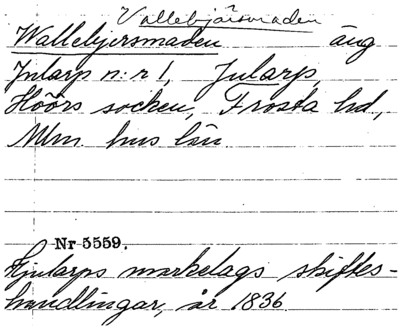 Vallebjärsmaden
Wallebjersmaden äng
Jularp n:r 1, Jularp,
Höörs socken, Frosta hd,
Mlm hus län
Nr 5559.
Hjularps markelags skiftes-
handlingar, år 1836.